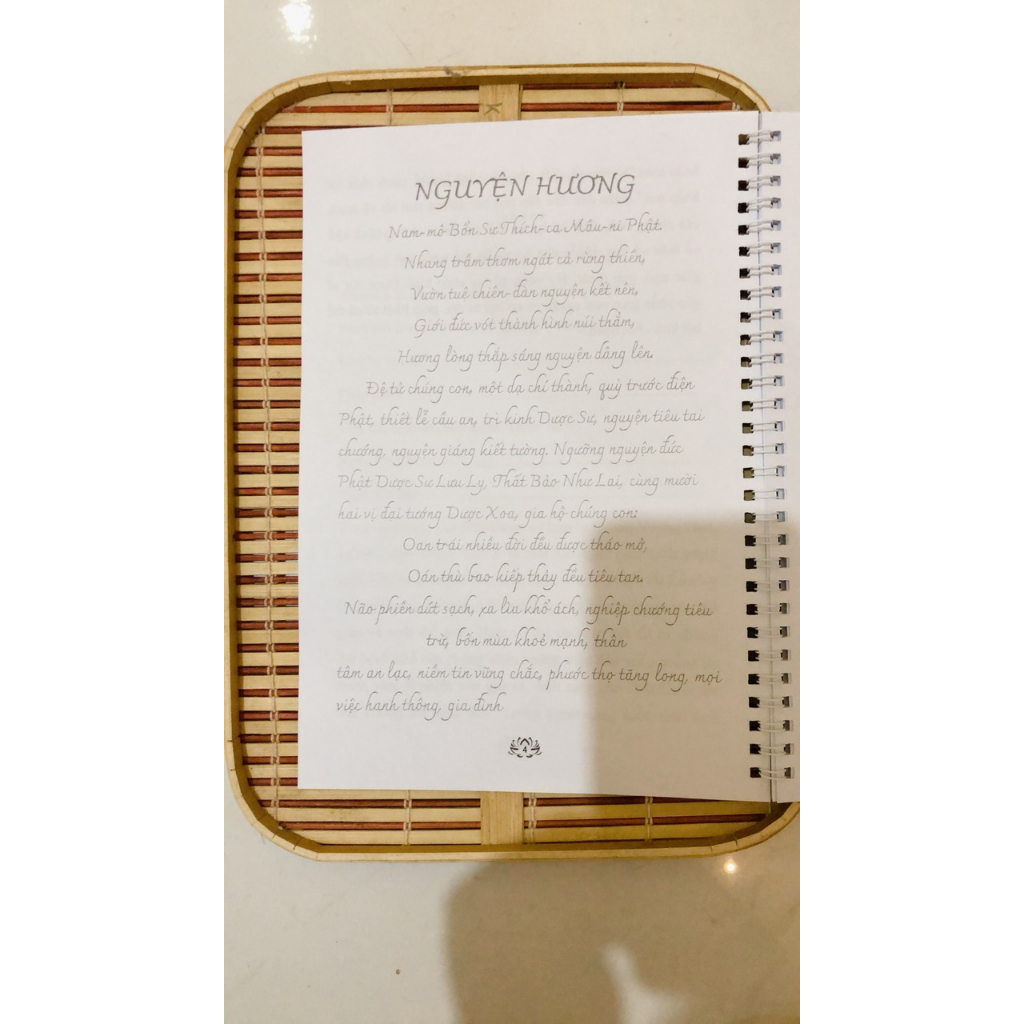 NGUYỆN HƯƠNG
Nam-mô Bổn Sư Thích-ca Mâu-ni Phật.
Nhang trầm thơm ngát cả rừng thiền,
Vườn tuệ chiên-đàn nguyện kết nên,
Giới đức vót thành hình núi thẳm,
Hương lòng thắp sáng nguyện dâng lên.
Đệ tử chúng con, một dạ chí thành, quỳ trước điện
Phật, thiết lễ cầu an, trì kinh Dược Sư, nguyện tiêu tai
chướng, nguyện giáng kiết tường. Ngưỡng nguyện đức
Phật Dược Sư Lưu Ly, Thất Bảo Như Lai, cùng mười
hai vị đại tướng Dược Xoa, gia hộ chúng con:
Oan trái nhiều đời đều được tháo mở,
Oán thù bao kiếp thảy đều tiêu tan.
Não phiền dứt sạch, xa lìa khổ ách, nghiệp chướng tiêu
trừ, bốn mùa khoẻ mạnh, thân
tâm an lạc, niềm tin vững chắc, phước thọ tăng long, mọi
việc hanh thông, gia đình
4